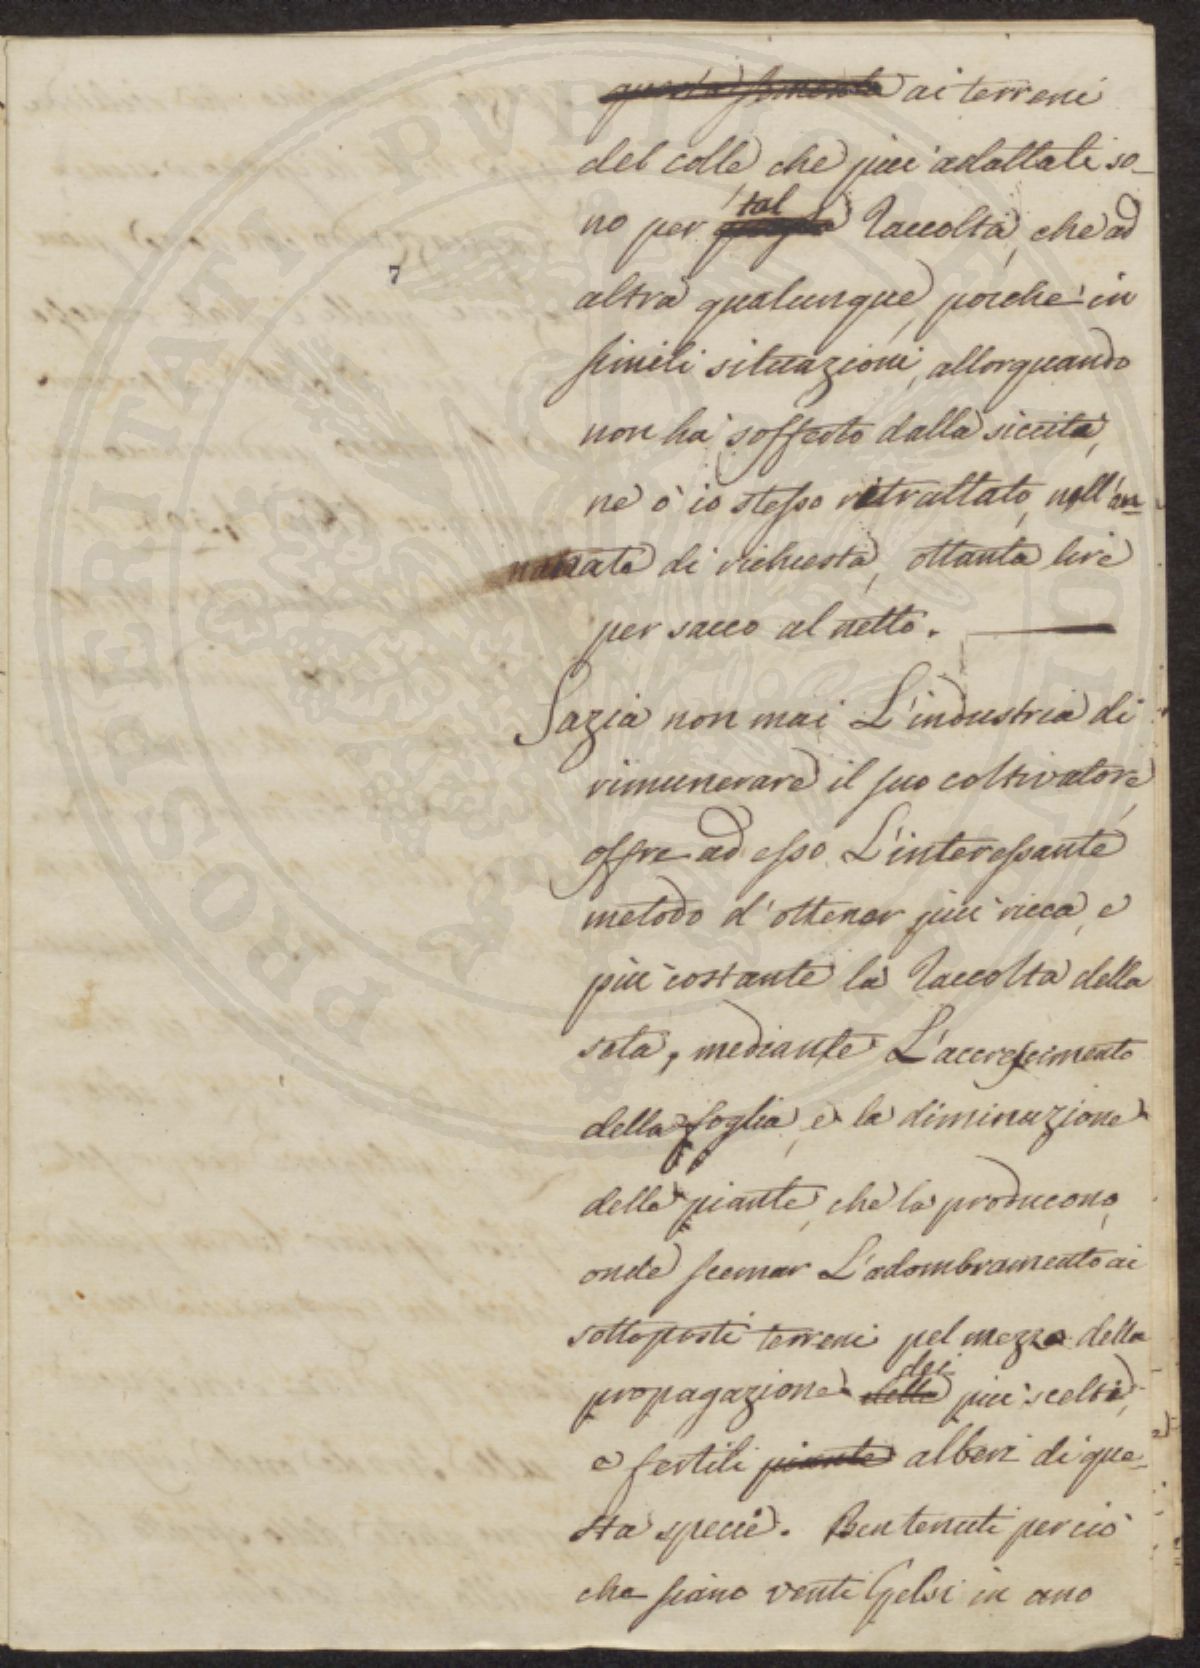 questa semente ai terreni
del colle che più adattati so-
no per tal Raccolta, che ad
7
altra qualunque, poichè in
simili situazioni, allorquando
non ha sofferto dalla siccità,
ne ò io stesso ritrattato, nell'an-
nata di richiesta, ottanta lire
per sacco al netto. —
Sazia non mai L'industria di
rimunerare il suo coltivatore,
offre ad esso L'interessante
metodo d'ottener più ricca, e
più costante la Raccolta della
seta, mediante L'accrescimento
della foglia, e la diminuzione
delle piante, che la producono,
onde scemar L'adombramento ai
sottoposti terreni pel mezzo della
propagazione delle dei più scelti,
e fertili piante alberi di que-
sta specie. Ben tenuti perciò
che siano venti Gelsi in ano
PROSPERITATI PVBLICAE AVGENDAE